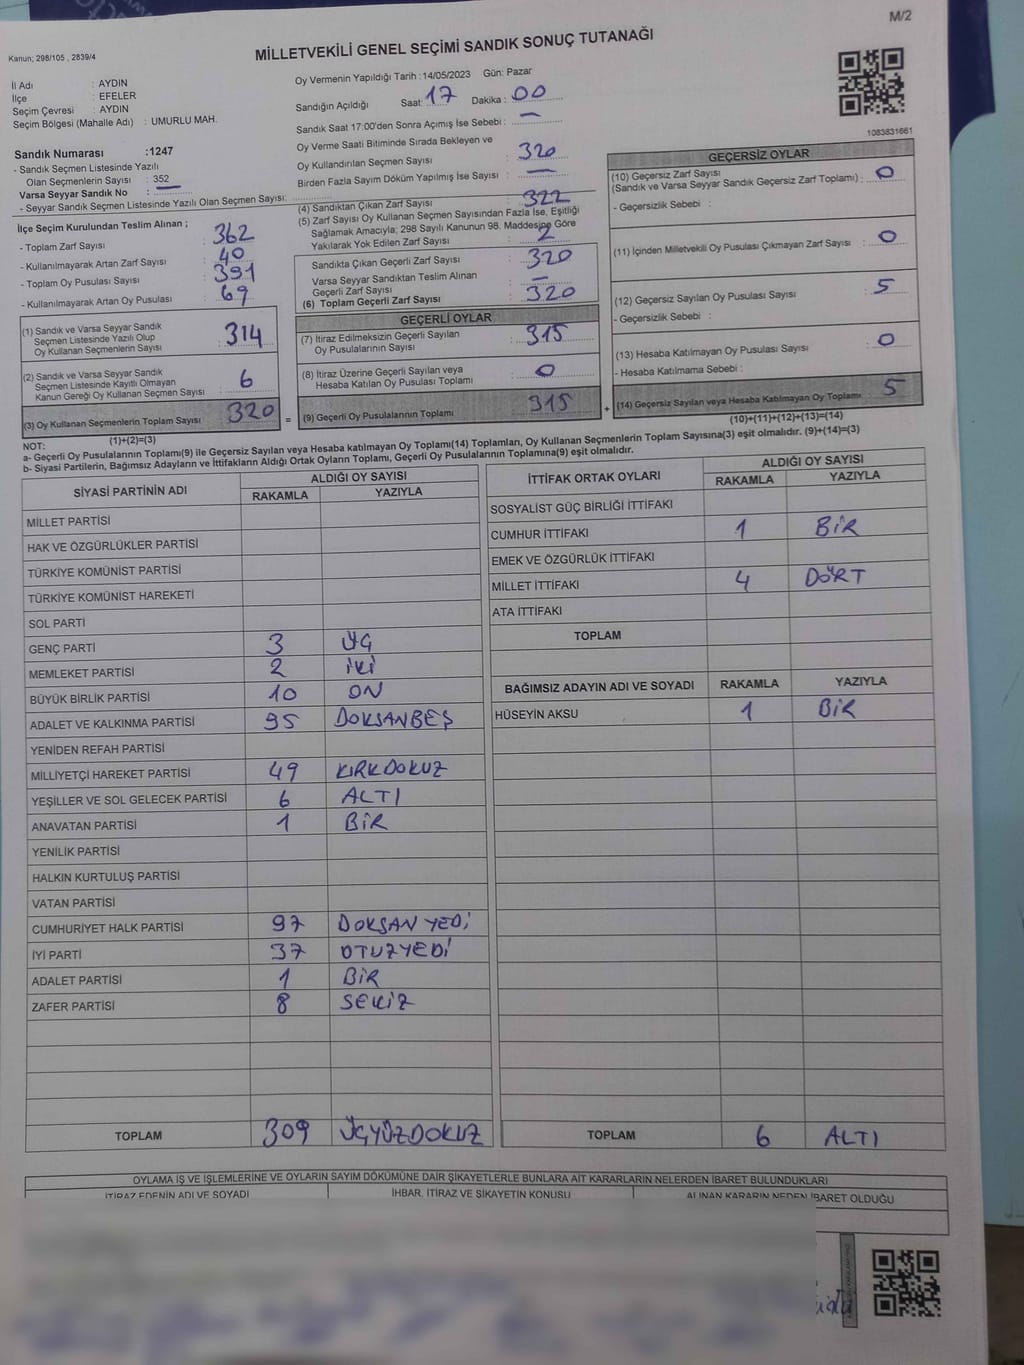 M/2
Kanun; 298/105 , 2839/4
MİLLETVEKİLİ GENEL SEÇİMİ SANDIK SONUÇ TUTANAĞI
İl Adı : AYDIN
İlçe : EFELER
Seçim Çevresi : AYDIN
Seçim Bölgesi (Mahalle Adı) : UMURLU MAH.
Sandık Numarası :1247
- Sandık Seçmen Listesinde Yazılı
Olan Seçmenlerin Sayısı : 352
Varsa Seyyar Sandık No : —
- Seyyar Sandık Seçmen Listesinde Yazılı Olan Seçmen Sayısı:
Oy Vermenin Yapıldığı Tarih : 14/05/2023 Gün: Pazar
Sandığın Açıldığı Saat: 17 Dakika : 00
Sandık Saat 17:00'den Sonra Açımış İse Sebebi : —
Oy Verme Saati Bitiminde Sırada Bekleyen ve
Oy Kullandırılan Seçmen Sayısı : 320
Birden Fazla Sayım Döküm Yapılmış İse Sayısı : —
1083831661
İlçe Seçim Kurulundan Teslim Alınan ;
- Toplam Zarf Sayısı : 362
- Kullanılmayarak Artan Zarf Sayısı : 40
- Toplam Oy Pusulası Sayısı : 391
- Kullanılmayarak Artan Oy Pusulası : 69
(1) Sandık ve Varsa Seyyar Sandık
Seçmen Listesinde Yazılı Olup
Oy Kullanan Seçmenlerin Sayısı : 314
(2) Sandık ve Varsa Seyyar Sandık
Seçmen Listesinde Kayıtlı Olmayan
Kanun Gereği Oy Kullanan Seçmen Sayısı : 6
(3) Oy Kullanan Seçmenlerin Toplam Sayısı : 320
(1)+(2)=(3)
(4) Sandıktan Çıkan Zarf Sayısı : 322
(5) Zarf Sayısı Oy Kullanan Seçmen Sayısından Fazla İse, Eşitliği
Sağlamak Amacıyla; 298 Sayılı Kanunun 98. Maddesine Göre
Yakılarak Yok Edilen Zarf Sayısı : 2
Sandıkta Çıkan Geçerli Zarf Sayısı : 320
Varsa Seyyar Sandıktan Teslim Alınan
Geçerli Zarf Sayısı : —
(6) Toplam Geçerli Zarf Sayısı : 320
GEÇERLİ OYLAR
(7) İtiraz Edilmeksizin Geçerli Sayılan
Oy Pusulalarının Sayısı : 315
(8) İtiraz Üzerine Geçerli Sayılan veya
Hesaba Katılan Oy Pusulası Toplamı : 0
= (9) Geçerli Oy Pusulalarının Toplamı : 315
GEÇERSİZ OYLAR
(10) Geçersiz Zarf Sayısı
(Sandık ve Varsa Seyyar Sandık Geçersiz Zarf Toplamı) : 0
- Geçersizlik Sebebi :
(11) İçinden Milletvekili Oy Pusulası Çıkmayan Zarf Sayısı : 0
(12) Geçersiz Sayılan Oy Pusulası Sayısı : 5
- Geçersizlik Sebebi :
(13) Hesaba Katılmayan Oy Pusulası Sayısı : 0
- Hesaba Katılmama Sebebi :
+ (14) Geçersiz Sayılan veya Hesaba Katılmayan Oy Toplamı : 5
(10)+(11)+(12)+(13)=(14)
NOT:
a- Geçerli Oy Pusulalarının Toplamı(9) ile Geçersiz Sayılan veya Hesaba katılmayan Oy Toplamı(14) Toplamları, Oy Kullanan Seçmenlerin Toplam Sayısına(3) eşit olmalıdır. (9)+(14)=(3)
b- Siyasi Partilerin, Bağımsız Adayların ve İttifakların Aldığı Ortak Oyların Toplamı, Geçerli Oy Pusulalarının Toplamına(9) eşit olmalıdır.
SİYASİ PARTİNİN ADI ALDIĞI OY SAYISI
RAKAMLA YAZIYLA
MİLLET PARTİSİ
HAK VE ÖZGÜRLÜKLER PARTİSİ
TÜRKİYE KOMÜNİST PARTİSİ
TÜRKİYE KOMÜNİST HAREKETİ
SOL PARTİ
GENÇ PARTİ 3 ÜÇ
MEMLEKET PARTİSİ 2 İKİ
BÜYÜK BİRLİK PARTİSİ 10 ON
ADALET VE KALKINMA PARTİSİ 95 DOKSANBEŞ
YENİDEN REFAH PARTİSİ
MİLLİYETÇİ HAREKET PARTİSİ 49 KIRKDOKUZ
YEŞİLLER VE SOL GELECEK PARTİSİ 6 ALTI
ANAVATAN PARTİSİ 1 BİR
YENİLİK PARTİSİ
HALKIN KURTULUŞ PARTİSİ
VATAN PARTİSİ
CUMHURİYET HALK PARTİSİ 97 DOKSAN YEDİ
İYİ PARTİ 37 OTUZYEDİ
ADALET PARTİSİ 1 BİR
ZAFER PARTİSİ 8 SEKİZ
TOPLAM 309 ÜÇYÜZDOKUZ
İTTİFAK ORTAK OYLARI ALDIĞI OY SAYISI
RAKAMLA YAZIYLA
SOSYALİST GÜÇ BİRLİĞİ İTTİFAKI
CUMHUR İTTİFAKI 1 BİR
EMEK VE ÖZGÜRLÜK İTTİFAKI
MİLLET İTTİFAKI 4 DÖRT
ATA İTTİFAKI
TOPLAM
BAĞIMSIZ ADAYIN ADI VE SOYADI RAKAMLA YAZIYLA
HÜSEYİN AKSU 1 BİR
TOPLAM 6 ALTI
OYLAMA İŞ VE İŞLEMLERİNE VE OYLARIN SAYIM DÖKÜMÜNE DAİR ŞİKAYETLERLE BUNLARA AİT KARARLARIN NELERDEN İBARET BULUNDUKLARI
İTİRAZ EDENİN ADI VE SOYADI İHBAR, İTİRAZ VE ŞİKAYETİN KONUSU ALINAN KARARIN NEDEN İBARET OLDUĞU